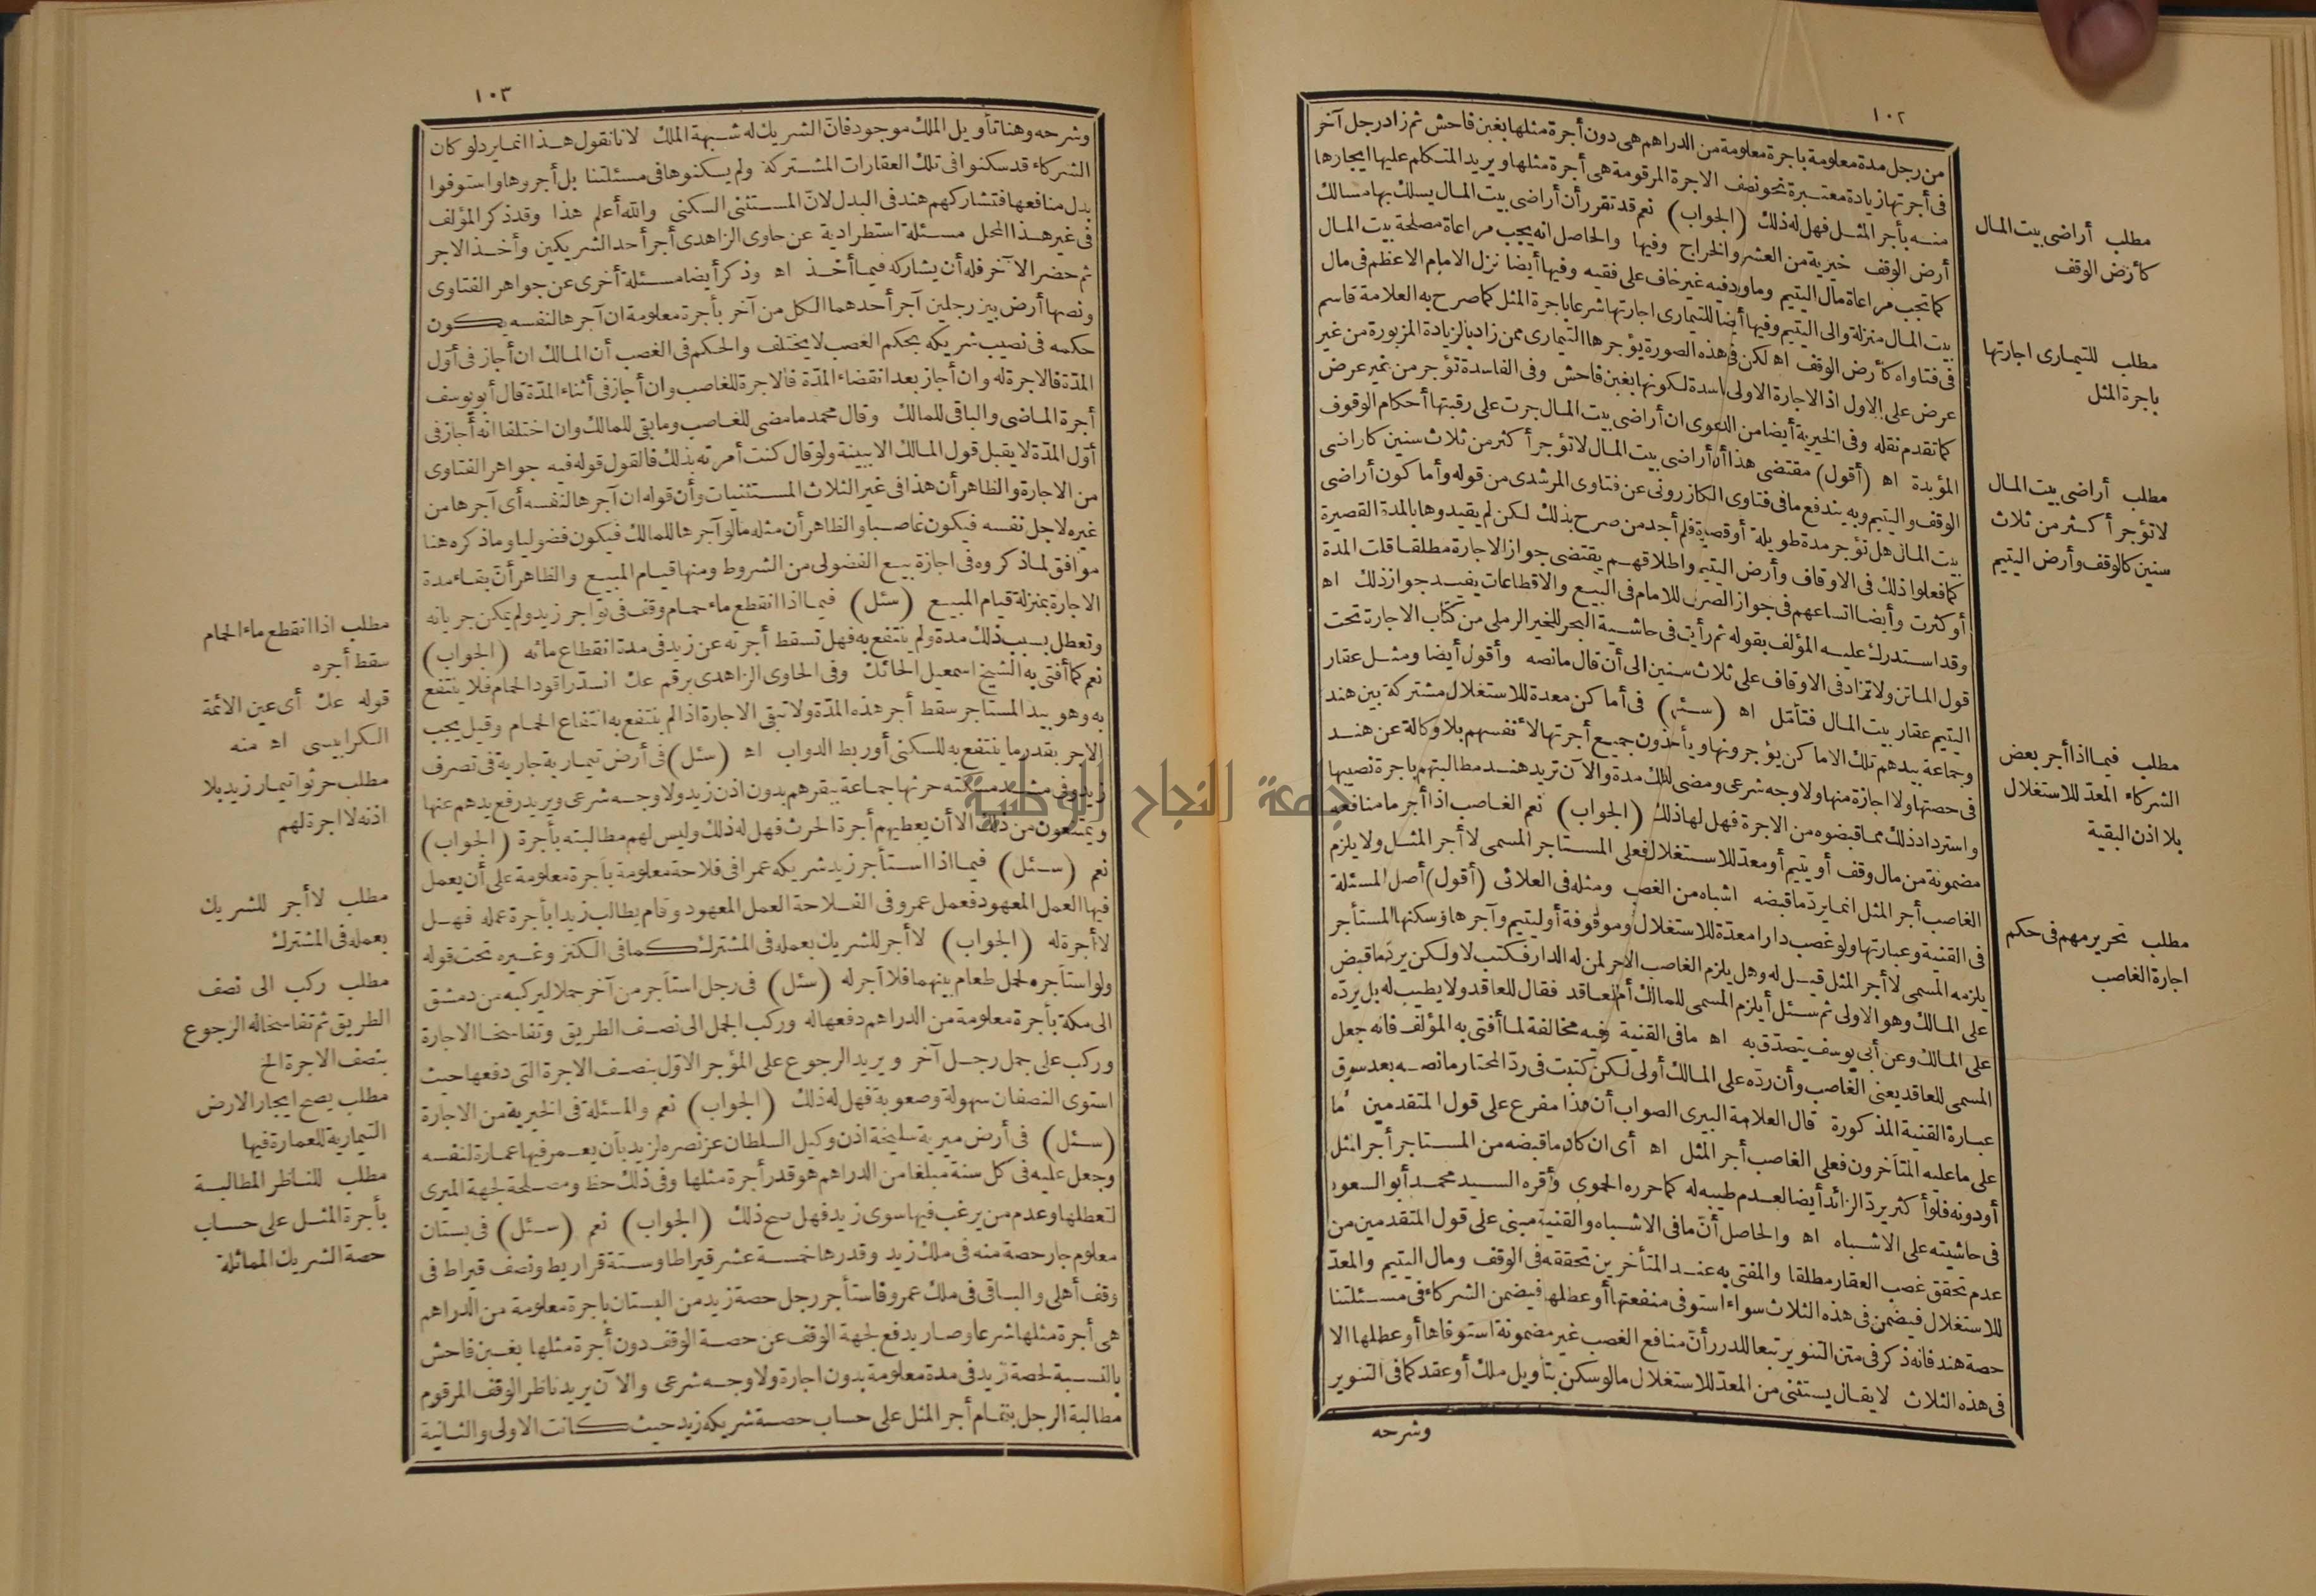 ١٠٢
من رجل مدة معلومة باجرة معلومة من الدراهم هى دون أجرة مثلها بغبن فاحش ثم زاد رجل آخر
فى أجرتها زيادة معتبرة نحو نصف الاجرة المرقومة هى أجرة مثلها ويريد المتكلم عليها ايجارها
منه بأجر المثل فهل له ذلك (الجواب) نعم قد تقرر أن أراضى بيت المال يسلك بها مسالك
أرض الوقف خيرية من العشر والخراج وفيها والحاصل انه يجب مراعاة مصلحة بيت المال
كما تجب مراعاة مال اليتيم وما ورد فيه غير خاف على فقيه وفيها أيضا نزل الامام الاعظم فى مال
بيت المال منزلة والى اليتيم وفيها أيضا للتيمارى اجارتها شرعا باجرة المثل كما صرح به العلامة قاسم
فى فتاواه كأرض الوقف اه لكن فى هذه الصورة يؤجرها التيمارى ممن زاد بالزيادة المزبورة من غير
عرض على الاول اذ الاجارة الاولى فاسدة لكونها بغبن فاحش وفى الفاسدة تؤجر من غير عرض
كما تقدم نقله وفى الخيرية أيضا من الدعوى ان أراضى بيت المال جرت على رقبتها أحكام الوقوف
المؤبدة اه (أقول) مقتضى هذا أن أراضى بيت المال لا تؤجر أكثر من ثلاث سنين كاراضى
الوقف واليتيم وبه يندفع ما فى فتاوى الكازرونى عن فتاوى المرشدى من قوله وأما كون أراضى
بيت المال هل تؤجر مدة طويلة أو قصيرة فلم أجد من صرح بذلك لكن لم يقيدوها بالمدة القصيرة
كما فعلوا ذلك فى الاوقاف وأرض اليتيم واطلاقهم يقتضى جواز الاجارة مطلقا قلت المدة
أو كثرت وأيضا اتساعهم فى جواز الصرف للامام فى البيع والاقطاعات يفيد جواز ذلك اه
وقد استدرك عليه المؤلف بقوله ثم رأيت فى حاشية البحر للخير الرملى من كتاب الاجارة تحت
قول الماتن ولا تزاد فى الاوقاف على ثلاث سنين الى أن قال ما نصه وأقول أيضا ومثل عقار
اليتيم عقار بيت المال فتأمل اه (سئل) فى أما كن معدة للاستغلال مشتركة بين هند
وجماعة بيدهم تلك الاماكن يؤجرونها ويأخذون جميع أجرتها لأنفسهم بلا وكالة عن هند
فى حصتها ولا اجازة منها ولا وجه شرعى ومضى لذلك مدة والآن تريد هند مطالبتهم باجرة نصيبها
واسترداد ذلك مما قبضوه من الاجرة فهل لها ذلك (الجواب) نعم الغاصب اذا أجر ما منافعه
مضمونة من مال وقف أو يتيم أو معد للاستغلال فعلى المستاجر المسمى لا أجر المثل ولا يلزم
الغاصب أجر المثل انما يرد ما قبضه اشباه من الغصب ومثله فى العلائى (أقول) أصل المسئلة
فى القنية وعبارتها ولو غصب دارا معدة للاستغلال وموقوفة أو ليتيم وآجرها وسكنها المستأجر
يلزمه المسمى لا أجر المثل قيل له وهل يلزم الغاصب الاجر لمن له الدار فكتب لا ولكن يرد ما قبض
على المالك وهو الاولى ثم سئل أيلزم المسمى للمالك أم للعاقد فقال للعاقد ولا يطيب له بل يرده
على المالك وعن أبى يوسف يتصدق به اه ما فى القنية وفيه مخالفة لما أفتى به المؤلف فانه جعل
المسمى للعاقد يعنى الغاصب وأن رده على المالك أولى لكن كتبت فى رد المحتار ما نصه بعد سوق
عبارة القنية المذكورة قال العلامة البيرى الصواب أن هذا مفرع على قول المتقدمين أما
على ما عليه المتأخرون فعلى الغاصب أجر المثل اه أى ان كان ما قبضه من المستاجر أجر المثل
أو دونه فلو أكثر يرد الزائد أيضا لعدم طيبه له كما حرره الحموى وأقره السيد محمد أبو السعود
فى حاشيته على الاشباه اه والحاصل أن ما فى الاشباه والقنية مبنى على قول المتقدمين من
عدم تحقق غصب العقار مطلقا والمفتى به عند المتأخرين تحققه فى الوقف ومال اليتيم والمعد
للاستغلال فيضمن فى هذه الثلاث سواء استوفى منفعتها أو عطلها فيضمن الشركاء فى مسئلتنا
حصة هند فانه ذكر فى متن التنوير تبعا للدرر أن منافع الغصب غير مضمونة استوفاها أو عطلها الا
فى هذه الثلاث لا يقال يستثنى من المعد للاستغلال ما لو سكن بتأويل ملك أو عقد كما فى التنوير
وشرحه
مطلب أراضى بيت المال
كأرض الوقف
مطلب للتيمارى اجارتها
باجرة المثل
مطلب أراضى بيت المال
لا تؤجر أكثر من ثلاث
سنين كالوقف وأرض اليتيم
مطلب فيما اذا أجر بعض
الشركاء المعد للاستغلال
بلا اذن البقية
مطلب تحرير مهم فى حكم
اجارة الغاصب
١٠٣
وشرحه وهنا تأويل الملك موجود فان الشريك له شبهة الملك لانا نقول هذا انما يرد لو كان
الشركاء قد سكنوا فى تلك العقارات المشتركة ولم يسكنوها فى مسئلتنا بل أجروها واستوفوا
بدل منافعها فتشاركهم هند فى البدل لان المستثنى السكنى والله أعلم هذا وقد ذكر المؤلف
فى غير هذا المحل مسئلة استطرادية عن حاوى الزاهدى أجر أحد الشريكين وأخذ الاجر
ثم حضر الآخر فله أن يشاركه فيما أخذ اه وذكر أيضا مسئلة أخرى عن جواهر الفتاوى
ونصها أرض بين رجلين آجر أحدهما الكل من آخر بأجرة معلومة ان آجرها لنفسه يكون
حكمه فى نصيب شريكه بحكم الغصب لا يختلف والحكم فى الغصب أن المالك ان أجاز فى أول
المدة فالاجرة له وان أجاز بعد انقضاء المدة فالاجرة للغاصب وان أجاز فى أثناء المدة قال أبو يوسف
أجرة الماضى والباقى للمالك وقال محمد ما مضى للغاصب وما بقى للمالك وان اختلفا انه أجاز فى
أول المدة لا يقبل قول المالك الا ببينة ولو قال كنت أمرته بذلك فالقول قوله فيه جواهر الفتاوى
من الاجارة والظاهر أن هذا فى غير الثلاث المستثنيات وأن قوله ان آجرها لنفسه أى آجرها من
غيره لاجل نفسه فيكون غاصبا والظاهر أن مثله ما لو آجرها للمالك فيكون فضوليا وما ذكره هنا
موافق لما ذكروه فى اجازة بيع الفضولى من الشروط ومنها قيام المبيع والظاهر أن بقاء مدة
الاجارة بمنزلة قيام المبيع (سئل) فيما اذا انقطع ماء حمام وقف فى تواجر زيد ولم يمكن جريانه
وتعطل بسبب ذلك مدة ولم ينتفع به فهل تسقط أجرته عن زيد فى مدة انقطاع مائه (الجواب)
نعم كما أفتى به الشيخ اسمعيل الحائك وفى الحاوى الزاهدى برقم عك انسد راقود الحمام فلا ينتفع
به وهو بيد المستاجر سقط أجر هذه المدة ولا تبقى الاجارة اذا لم ينتفع به انتفاع الحمام وقيل يجب
الاجر بقدر ما ينتفع به للسكنى أو ربط الدواب اه (سئل) فى أرض تيمارية جارية فى تصرف
زيد وفى مشد مسكته حرثها جماعة ببقرهم بدون اذن زيد ولا وجه شرعى ويريد رفع يدهم عنها
ويمتنعون من ذلك الا أن يعطيهم أجرة الحرث فهل له ذلك وليس لهم مطالبته بأجرة (الجواب)
نعم (سئل) فيما اذا استأجر زيد شريكه عمرا فى فلاحة معلومة بأجرة معلومة على أن يعمل
فيها العمل المعهود فعمل عمرو فى الفلاحة العمل المعهود وقام يطالب زيدا بأجرة عمله فهل
لا أجرة له (الجواب) لا أجر للشريك بعمله فى المشترك كما فى الكنز وغيره تحت قوله
ولو استأجره لحمل طعام بينهما فلا أجر له (سئل) فى رجل استأجر من آخر جملا ليركبه من دمشق
الى مكة بأجرة معلومة من الدراهم دفعها له وركب الجمل الى نصف الطريق وتفاسخا الاجارة
وركب على جمل رجل آخر ويريد الرجوع على المؤجر الاول بنصف الاجرة التى دفعها حيث
استوى النصفان سهولة وصعوبة فهل له ذلك (الجواب) نعم والمسئلة فى الخيرية من الاجارة
(سئل) فى أرض ميرية سليخة اذن وكيل السلطان عز نصره لزيد بأن يعمر فيها عمارة لنفسه
وجعل عليه فى كل سنة مبلغا من الدراهم هو قدر أجرة مثلها وفى ذلك حظ ومصلحة لجهة الميرى
لتعطلها وعدم من يرغب فيها سوى زيد فهل صح ذلك (الجواب) نعم (سئل) فى بستان
معلوم جار حصة منه فى ملك زيد وقدرها خمسة عشر قيراطا وستة قراريط ونصف قيراط فى
وقف أهلى والباقى فى ملك عمرو فاستأجر رجل حصة زيد من البستان باجرة معلومة من الدراهم
هى أجرة مثلها شرعا وصار يدفع لجهة الوقف عن حصة الوقف دون أجرة مثلها بغبن فاحش
بالنسبة لحصة زيد فى مدة معلومة بدون اجارة ولا وجه شرعى والآن يريد ناظر الوقف المرقوم
مطالبة الرجل بتمام أجر المثل على حساب حصة شريكه زيد حيث كانت الاولى والثانية
مطلب اذا انقطع ماء الحمام
سقط أجره
قوله عك أى عين الائمة
الكرابيسى اه منه
مطلب حرثوا تيمار زيد بلا
اذنه لا اجرة لهم
مطلب لا أجر للشريك
بعمله فى المشترك
مطلب ركب الى نصف
الطريق ثم تفاسخا له الرجوع
بنصف الاجرة الخ
مطلب يصح ايجار الارض
التيمارية للعمارة فيها
مطلب للناظر المطالبة
بأجرة المثل على حساب
حصة الشريك المماثلة
جامعة النجاح الوطنية